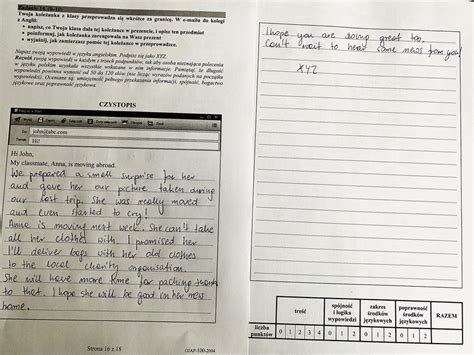 Zadanie 14. (0–10)
Twoja koleżanka z klasy przeprowadza się wkrótce za granicę. W e-mailu do kolegi
z Anglii:
• napisz, co Twoja klasa dała tej koleżance w prezencie, i opisz ten przedmiot
• poinformuj, jak koleżanka zareagowała na Wasz prezent
• wyjaśnij, jak zamierzasz pomóc tej koleżance w przeprowadzce.
Napisz swoją wypowiedź w języku angielskim. Podpisz się jako XYZ.
Rozwiń swoją wypowiedź w każdym z trzech podpunktów, tak aby osoba nieznająca polecenia
w języku polskim uzyskała wszystkie wskazane w nim informacje. Pamiętaj, że długość
wypowiedzi powinna wynosić od 50 do 120 słów (nie licząc wyrazów podanych na początku
wypowiedzi). Oceniane są: umiejętność pełnego przekazania informacji, spójność, bogactwo
językowe oraz poprawność językowa.
CZYSTOPIS
Do: john@abc.com
Temat: Hi!
Hi John,
My classmate, Anna, is moving abroad.
We prepared a small surprise for her
and gave her our picture taken during
our last trip. She was really moved
and even started to cry!
Anna is moving next week. She can't take
all her clothes with I promised her
I'll deliver bags with her old clothes
to the local charity organisation.
She will have more time for packing thanks
to that. I hope she will be good in her new
home.
Strona 16 z 18
OJAP-100-2004
I hope you are doing great too.
Can't wait to hear some news from you!
XYZ
treść
spójność
i logika
wypowiedzi
zakres
środków
językowych
poprawność
środków
językowych
RAZEM
liczba
punktów
0 1 2 3 4 0 1 2 0 1 2 0 1 2